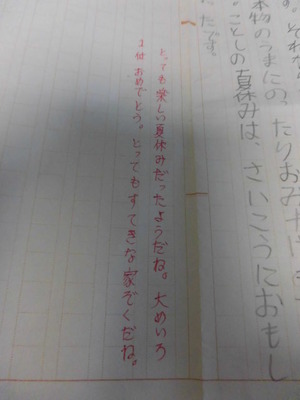 す。それな
本物のうまにの、たりおみ
ことしの夏休みは、さいこうにおもし
たです。
とっても楽しい夏休みだったようだね。大めいろ
1位おめでとう。とってもすてきな家ぞくだね。